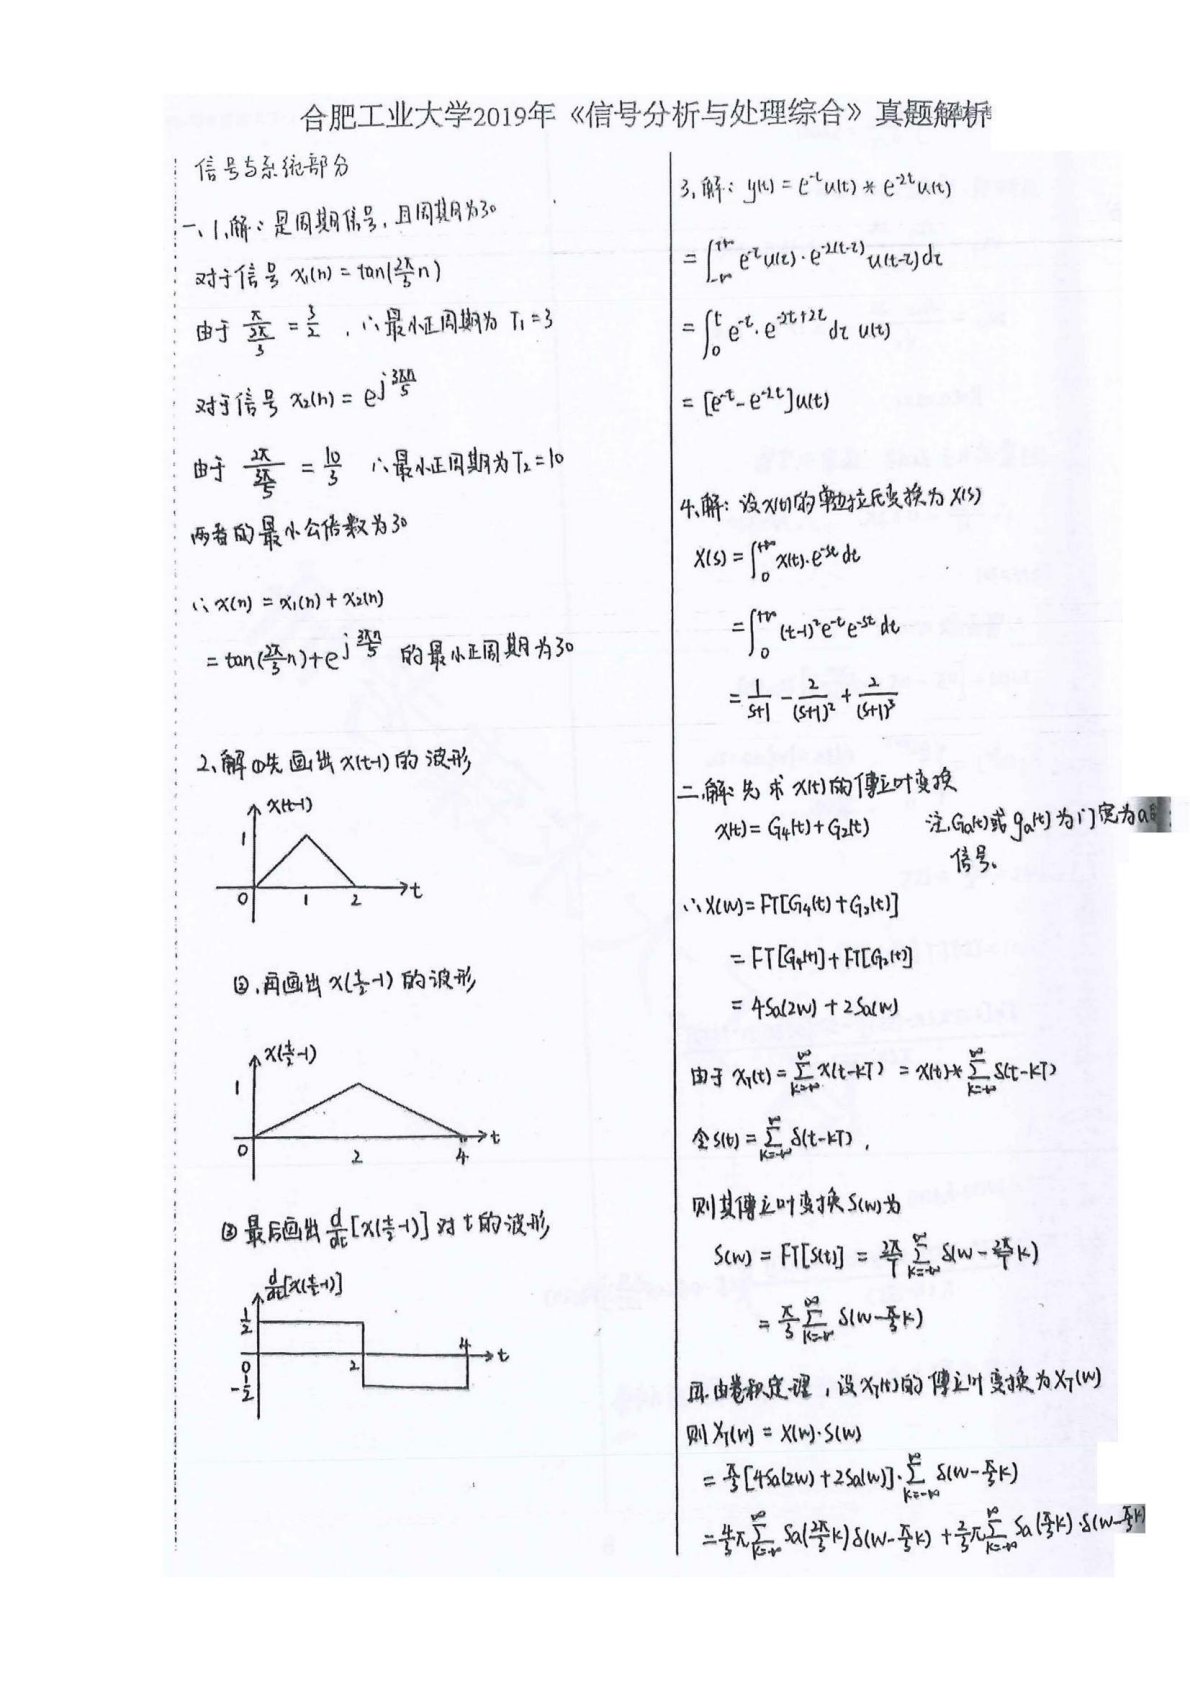 合肥工业大学2019年《信号分析与处理综合》真题解析
信号与系统部分
一、1、解：是周期信号，且周期为30
对于信号 x₁(n) = tan(2π/3 n)
由于 π/(2π/3) = 3/2 ，∴最小正周期为 T₁=3
对于信号 x₂(n) = e^(j3πn/5)
由于 2π/(3π/5) = 10/3 ∴最小正周期为T₂=10
两者的最小公倍数为30
∴ x(n) = x₁(n) + x₂(n)
= tan(2π/3 n)+e^(j3πn/5) 的最小正周期为30
2、解 ①先画出 x(t-1) 的波形
x(t-1)
1
0 1 2 t
②.再画出 x(t/2-1) 的波形
x(t/2-1)
1
0 2 4 t
③最后画出 d/dt[x(t/2-1)] 对 t 的波形
d/dt[x(t/2-1)]
1/2
0 2 4 t
-1/2
3、解： y(t) = e^(-t)u(t) * e^(-2t)u(t)
= ∫_(-∞)^(+∞) e^(-τ)u(τ)·e^(-2(t-τ))u(t-τ)dτ
= ∫_0^t e^(-τ)·e^(-2t+2τ)dτ u(t)
= [e^(-t)-e^(-2t)]u(t)
4、解：设x(t)的单边拉氏变换为X(s)
X(s) = ∫_0^(+∞) x(t)·e^(-st)dt
= ∫_0^(+∞) (t-1)²e^(-t)e^(-st)dt
= 1/(s+1) - 2/(s+1)² + 2/(s+1)³
二、解：先求 x(t)的傅立叶变换
x(t)= G₄(t)+G₂(t) 注.Ga(t)或ga(t)为门宽为a
信号。
∴X(w)=FT[G₄(t)+G₂(t)]
= FT[G₄(t)]+FT[G₂(t)]
= 4Sa(2w)+2Sa(w)
由于 x_T(t) = Σ_(k=-∞)^∞ x(t-kT) = x(t)* Σ_(k=-∞)^∞ δ(t-kT)
令 s(t) = Σ_(k=-∞)^∞ δ(t-kT) ,
则其傅立叶变换S(w)为
S(w) = FT[s(t)] = 2π/T Σ_(k=-∞)^∞ δ(w-2π/T k)
= π/3 Σ_(k=-∞)^∞ δ(w-π/3 k)
再由卷积定理，设 x_T(t)的傅立叶变换为X_T(w)
则 X_T(w) = X(w)·S(w)
= π/3[4Sa(2w)+2Sa(w)]· Σ_(k=-∞)^∞ δ(w-π/3 k)
= 4/3 π Σ_(k=-∞)^∞ Sa(2π/3 k)δ(w-π/3 k) + 2/3 π Σ_(k=-∞)^∞ Sa(π/3 k)·δ(w-π/3 k)